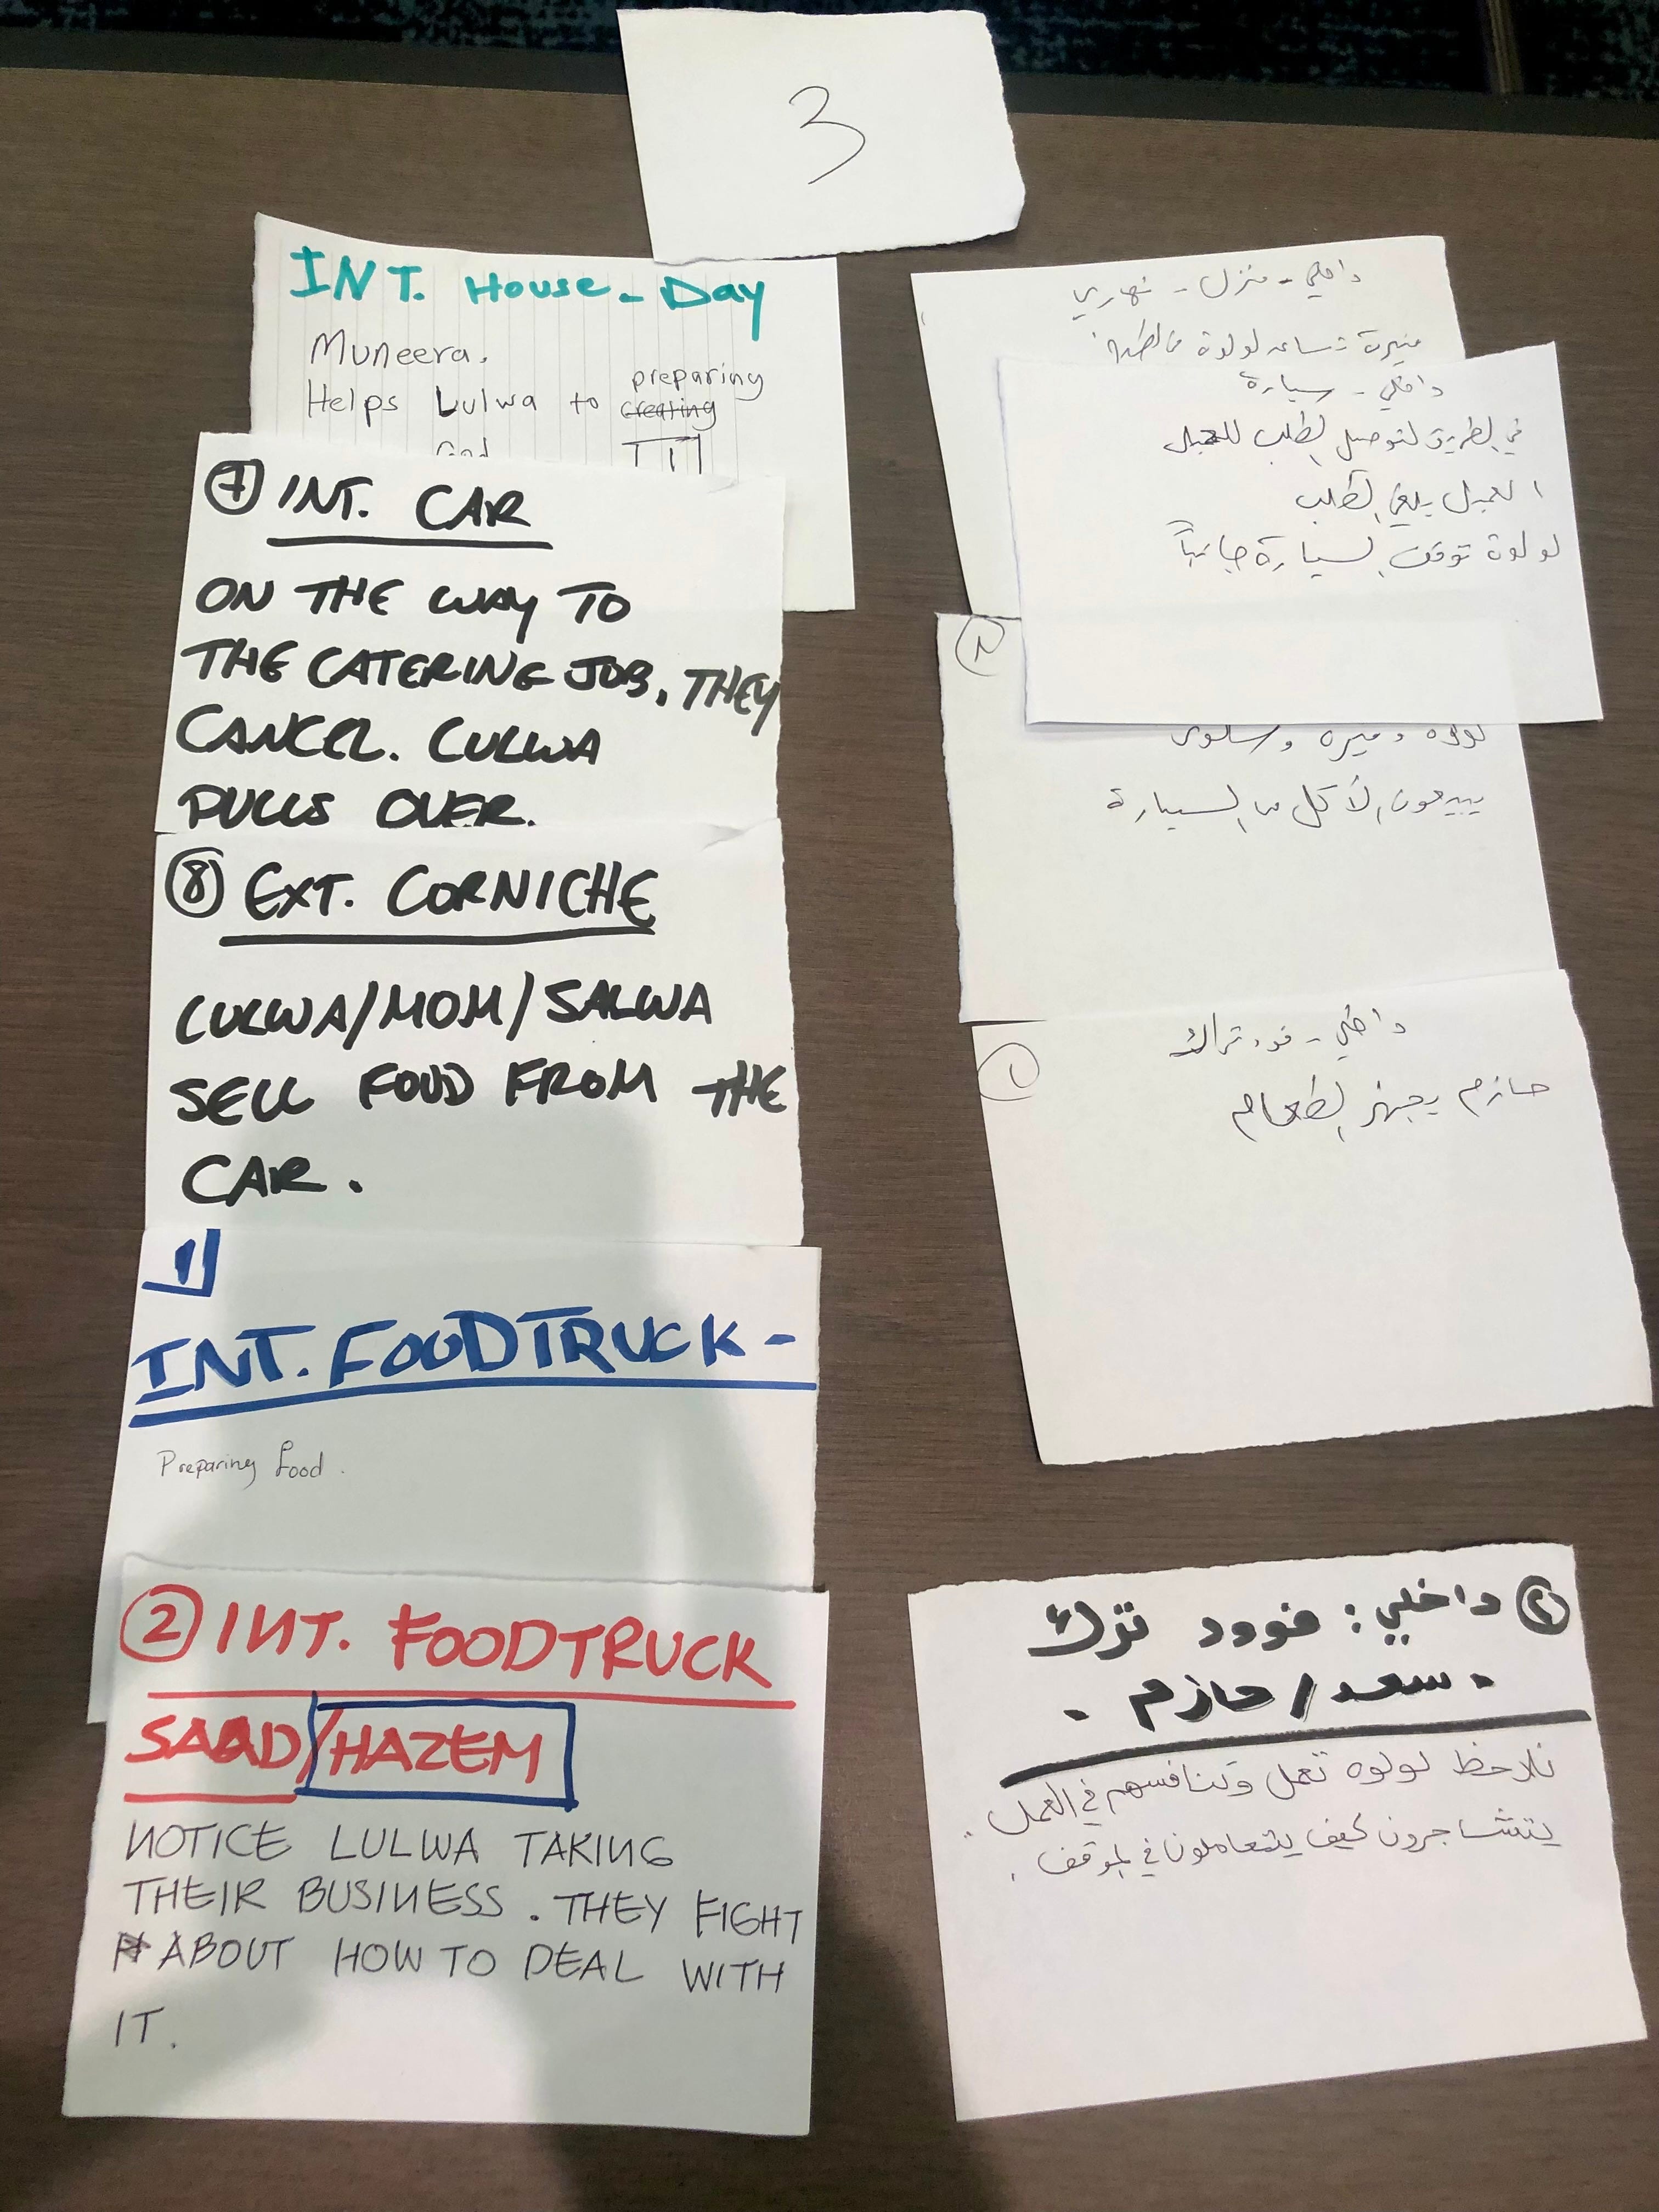 3
INT. House - Day
Muneera.
Helps Lulwa to creating preparing
7 INT. CAR
ON THE WAY TO
THE CATERING JOB, THEY
CANCEL. LULWA
PULLS OVER.
8 EXT. CORNICHE
LULWA/MOM/SALWA
SELL FOOD FROM THE
CAR.
1
INT. FOODTRUCK -
Preparing food.
2 INT. FOODTRUCK
SAAD/HAZEM
NOTICE LULWA TAKING
THEIR BUSINESS. THEY FIGHT
ABOUT HOW TO DEAL WITH
IT.
داخلي - منزل - نهاري
منيرة تساعد لولوة
داخلي - سيارة
في الطريق لتوصيل الطلب للعميل
العميل يلغي الطلب
لولوة توقف السيارة جانباً
٨
لولوه ومنيره وسلوى
يبيعون الأكل من السيارة
١
داخلي - فود تراك
حازم يجهز الطعام
٢ داخلي: فوود ترك
- سعد/حازم -
نلاحظ لولوه تعمل وتنافسهم في العمل.
يتشاجرون كيف يتعاملون في الموقف.